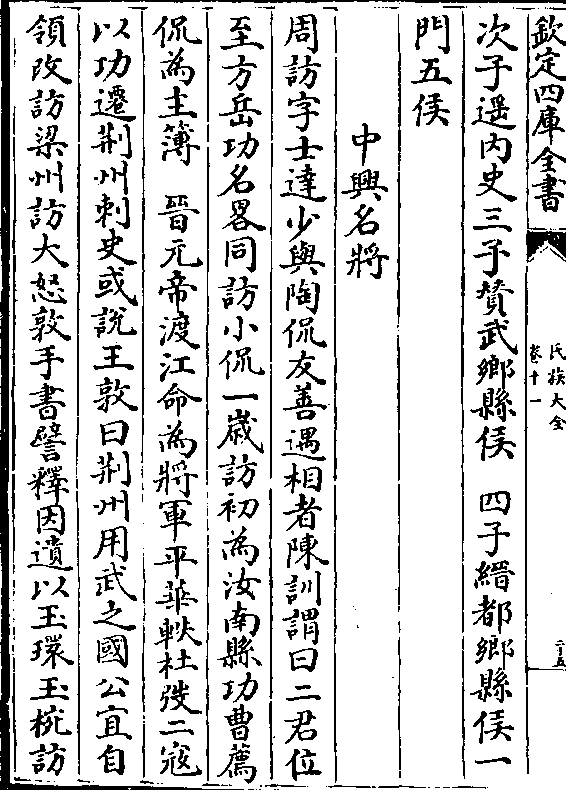 欽定四庫全書
氏族大全
卷十一
二十五
次子遥内史三子賛武鄉縣侯 四子縉都鄉縣侯一
門五侯
中興名將
周訪字士達少與陶侃友善遇相者陳訓謂曰二君位
至方岳功名畧同訪小侃一嵗訪初為汝南縣功曹薦
侃為主簿 晉元帝渡江命為將軍平華軼杜弢二寇
以功遷荆州刺史或說王敦曰荆州用武之國公宜自
領改訪梁州訪大怒敦手書譬釋因遺以玉環玉椀訪